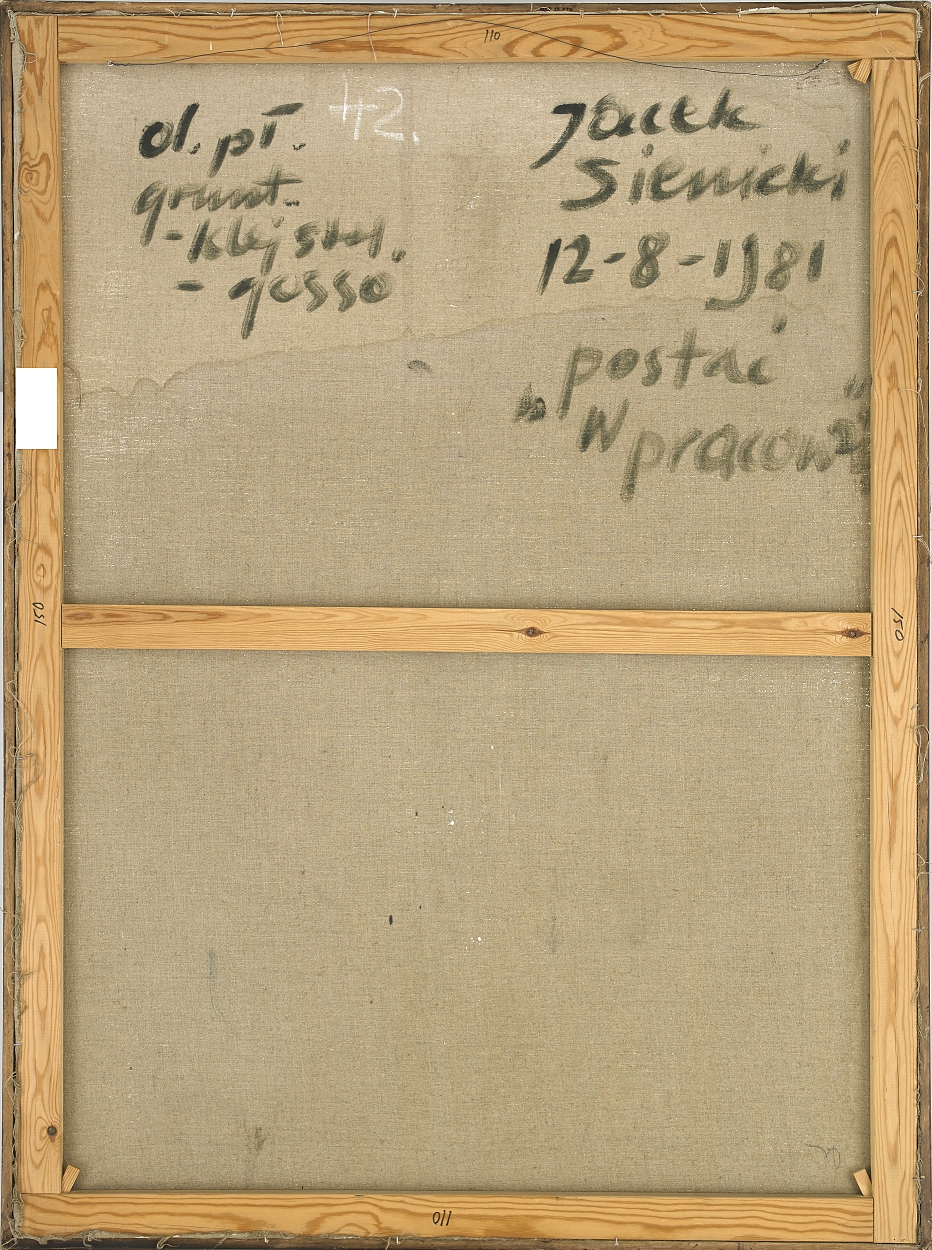 110
42.
ol. pł.
grunt.
- klej stol.
- gesso
Jacek
Sienicki
12-8-1981
postać
„W
pracowni”
150
150
110